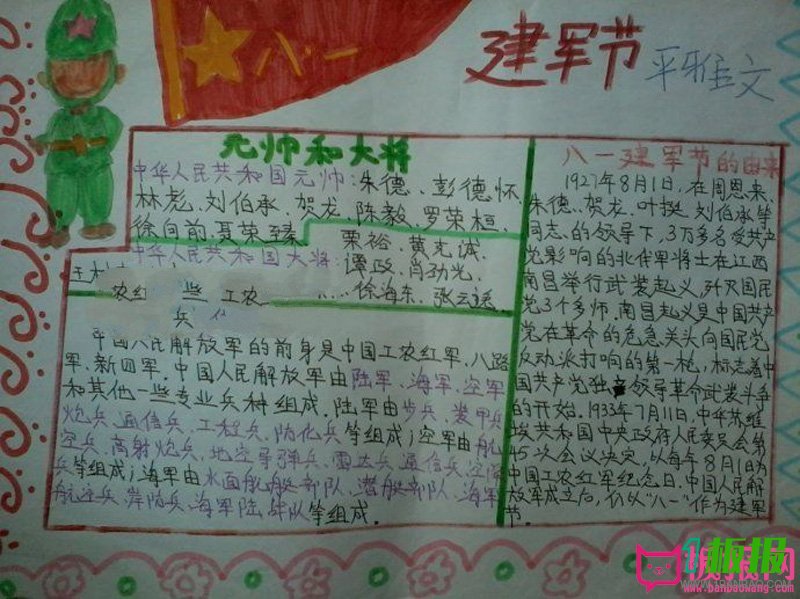 八一
建军节
平雅文
元帅和大将
中华人民共和国元帅：朱德、彭德怀
林彪、刘伯承、贺龙、陈毅、罗荣桓、
徐向前、聂荣臻
中华人民共和国大将：
粟裕、黄克诚、
谭政、肖劲光、
徐海东、张云逸
农红 些 工农
兵
中国人民解放军的前身是中国工农红军、八路
军、新四军.中国人民解放军由陆军、海军、空军
和其他一些专业兵种组成.陆军由步兵、装甲兵
炮兵、通信兵、工程兵、防化兵等组成；空军由航
空兵、高射炮兵、地空导弹兵、雷达兵、通信兵、空降
兵等组成；海军由水面舰艇部队、潜艇部队、海军
航空兵、岸防兵、海军陆战队等组成.
八一建军节的由来
1927年8月1日,在周恩来、
朱德、贺龙、叶挺、刘伯承等
同志的领导下,3万多名受共产
党影响的北伐军将士在江西
南昌举行武装起义,歼灭国民
党3个多师.南昌起义是中国共产
党在革命的危急关头向国民党
反动派打响的第一枪,标志着中
国共产党独立领导革命武装斗争
的开始.1933年7月11日,中华苏维
埃共和国中央政府人民委员会第
45次会议决定,以每年8月1日为
中国工农红军纪念日.中国人民解
放军成立后,仍以“八一”作为建军
节.
板报
www.banbaowang.com